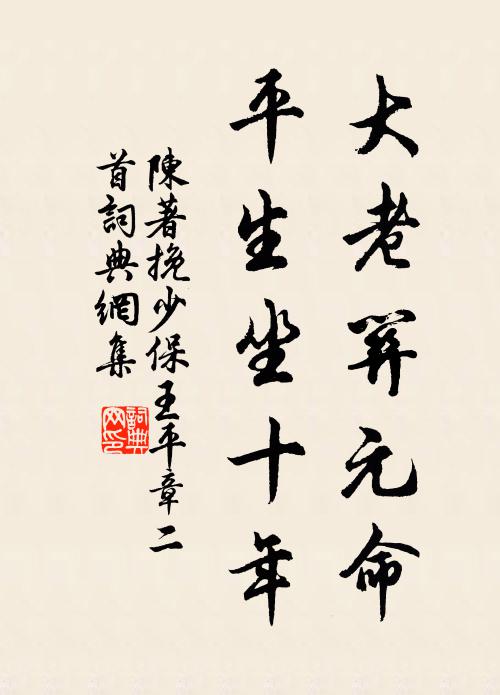 大老關元命
平生坐十年
陳著挽少保王平章二
首詞典網集
詞典
网印